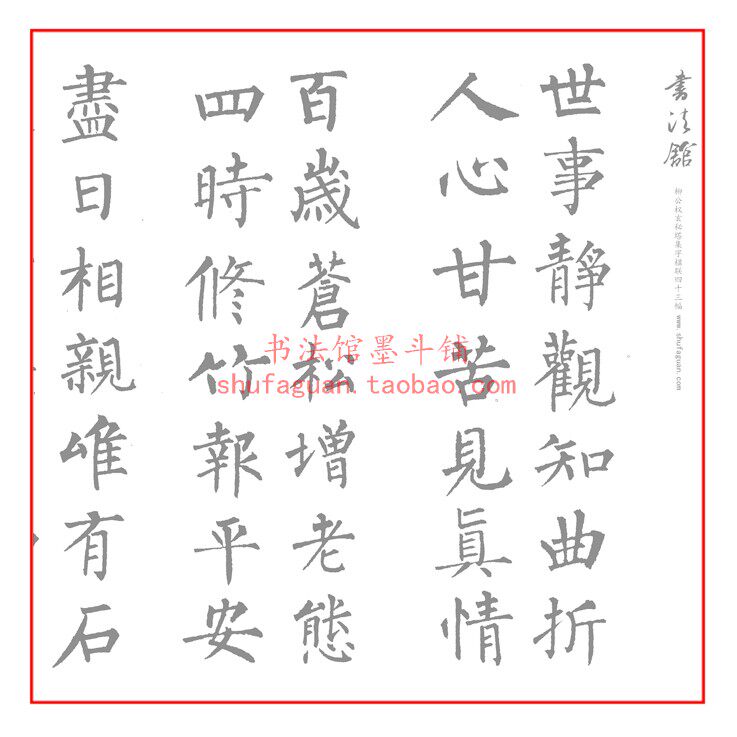 书法舘
柳公权玄秘塔集字楹联四十三幅 www.shufaguan.com
世事靜觀知曲折
人心甘苦見真情
百歲蒼松增老態
四時修竹報平安
盡日相親唯有石
书法馆墨斗铺
shufaguan.taobao.com